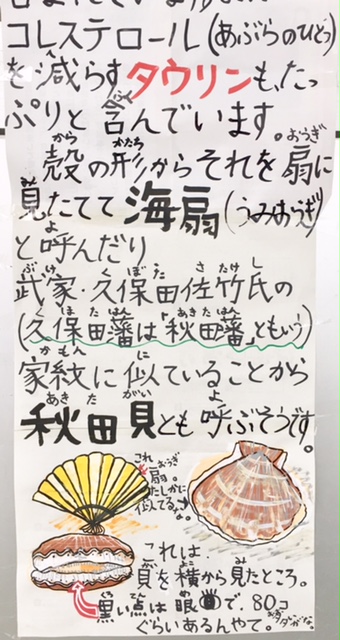 含まれています。
コレステロール(あぶらのひとつ)
を減らすタウリンも、たっ
ぷりと含んでいます。
殻の形からそれを扇に
見たてて海扇(うみおうぎ)
と呼んだり
武家・久保田佐竹氏の
(久保田藩は「秋田藩」ともいう)
家紋に似ていることから
秋田貝とも呼ぶそうです。
これも扇。
たしかに
似てるなぁ。
これは、
貝を横から見たところ。
黒い点は眼で、80コ
ぐらいあるんやて。